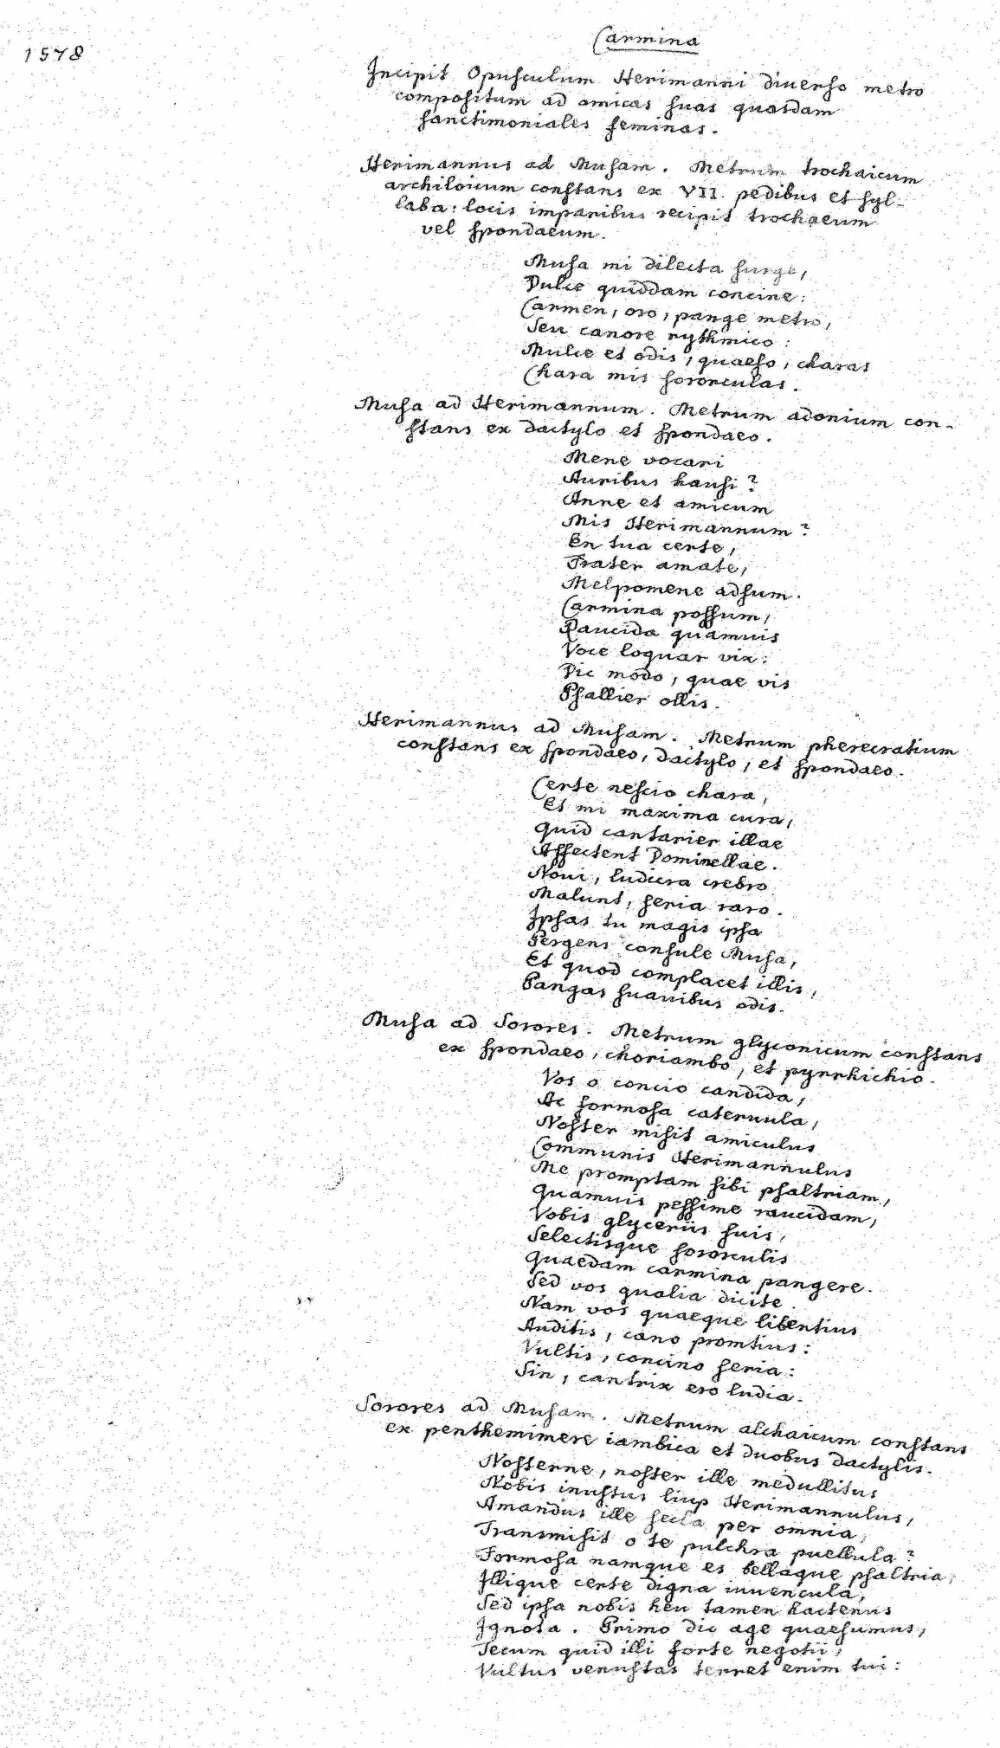 Carmina
1578
Incipit Opusculum Herimanni diuerso metro
compositum ad amicas suas quasdam
sanctimoniales feminas.
Herimannus ad Musam. Metrum trochaicum
archiloicum constans ex VII. pedibus et syl-
laba: locis imparibus recipit trochaeum
vel spondaeum.
Musa mi dilecta surge,
Dulce quiddam concine:
Carmen, oro, pange metro,
Seu canore rythmico:
Mulce et odis, quaeso, charas
Chara mis sororculas.
Musa ad Herimannum. Metrum adonium con-
stans ex dactylo et spondaeo.
Mene vocari
Auribus hausi?
Anne et amicum
Mis Herimannum?
En tua certe,
Frater amate,
Melpomene adsum.
Carmina possum,
Raucida quamuis
Voce loquar vix:
Dic modo, quae vis
Psallier ollis.
Herimannus ad Musam. Metrum pherecratium
constans ex spondaeo, dactylo, et spondaeo.
Certe nescio chara,
Et mi maxima cura,
Quid cantarier illae
Affectent Dominellae.
Noui, ludicra crebro
Malunt, seria raro.
Ipsas tu magis ipsa
Pergens consule Musa,
Et quod complacet illis,
Pangas suauibus odis.
Musa ad Sorores. Metrum glyconicum constans
ex spondaeo, choriambo, et pyrrhichio.
Vos o concio candida,
Ac formosa cateruula,
Noster misit amiculus
Communis Herimannulus
Me promptam sibi psaltriam,
Quamuis pessime raucidam,
Vobis glyceriis suis,
Selectisque sororculis
Quaedam carmina pangere.
Sed vos qualia dicite.
Nam vos quaeque libentius
Auditis, cano promtius:
Vultis, concino seria:
Sin, cantrix ero ludia.
Sorores ad Musam. Metrum alchaicum constans
ex penthemimere iambica et duobus dactylis.
Nosterne, noster ille medullitus
Nobis inustus liup Herimannulus,
Amandus ille secla per omnia,
Transmisit o te pulchra puellula?
Formosa namque es bellaque psaltria,
Illique certe digna iuuencula,
Sed ipsa nobis heu tamen hactenus
Ignota. Primo dic age quaesumus,
Tecum quid illi forte negotii;
Vultus venustas terret enim tui: